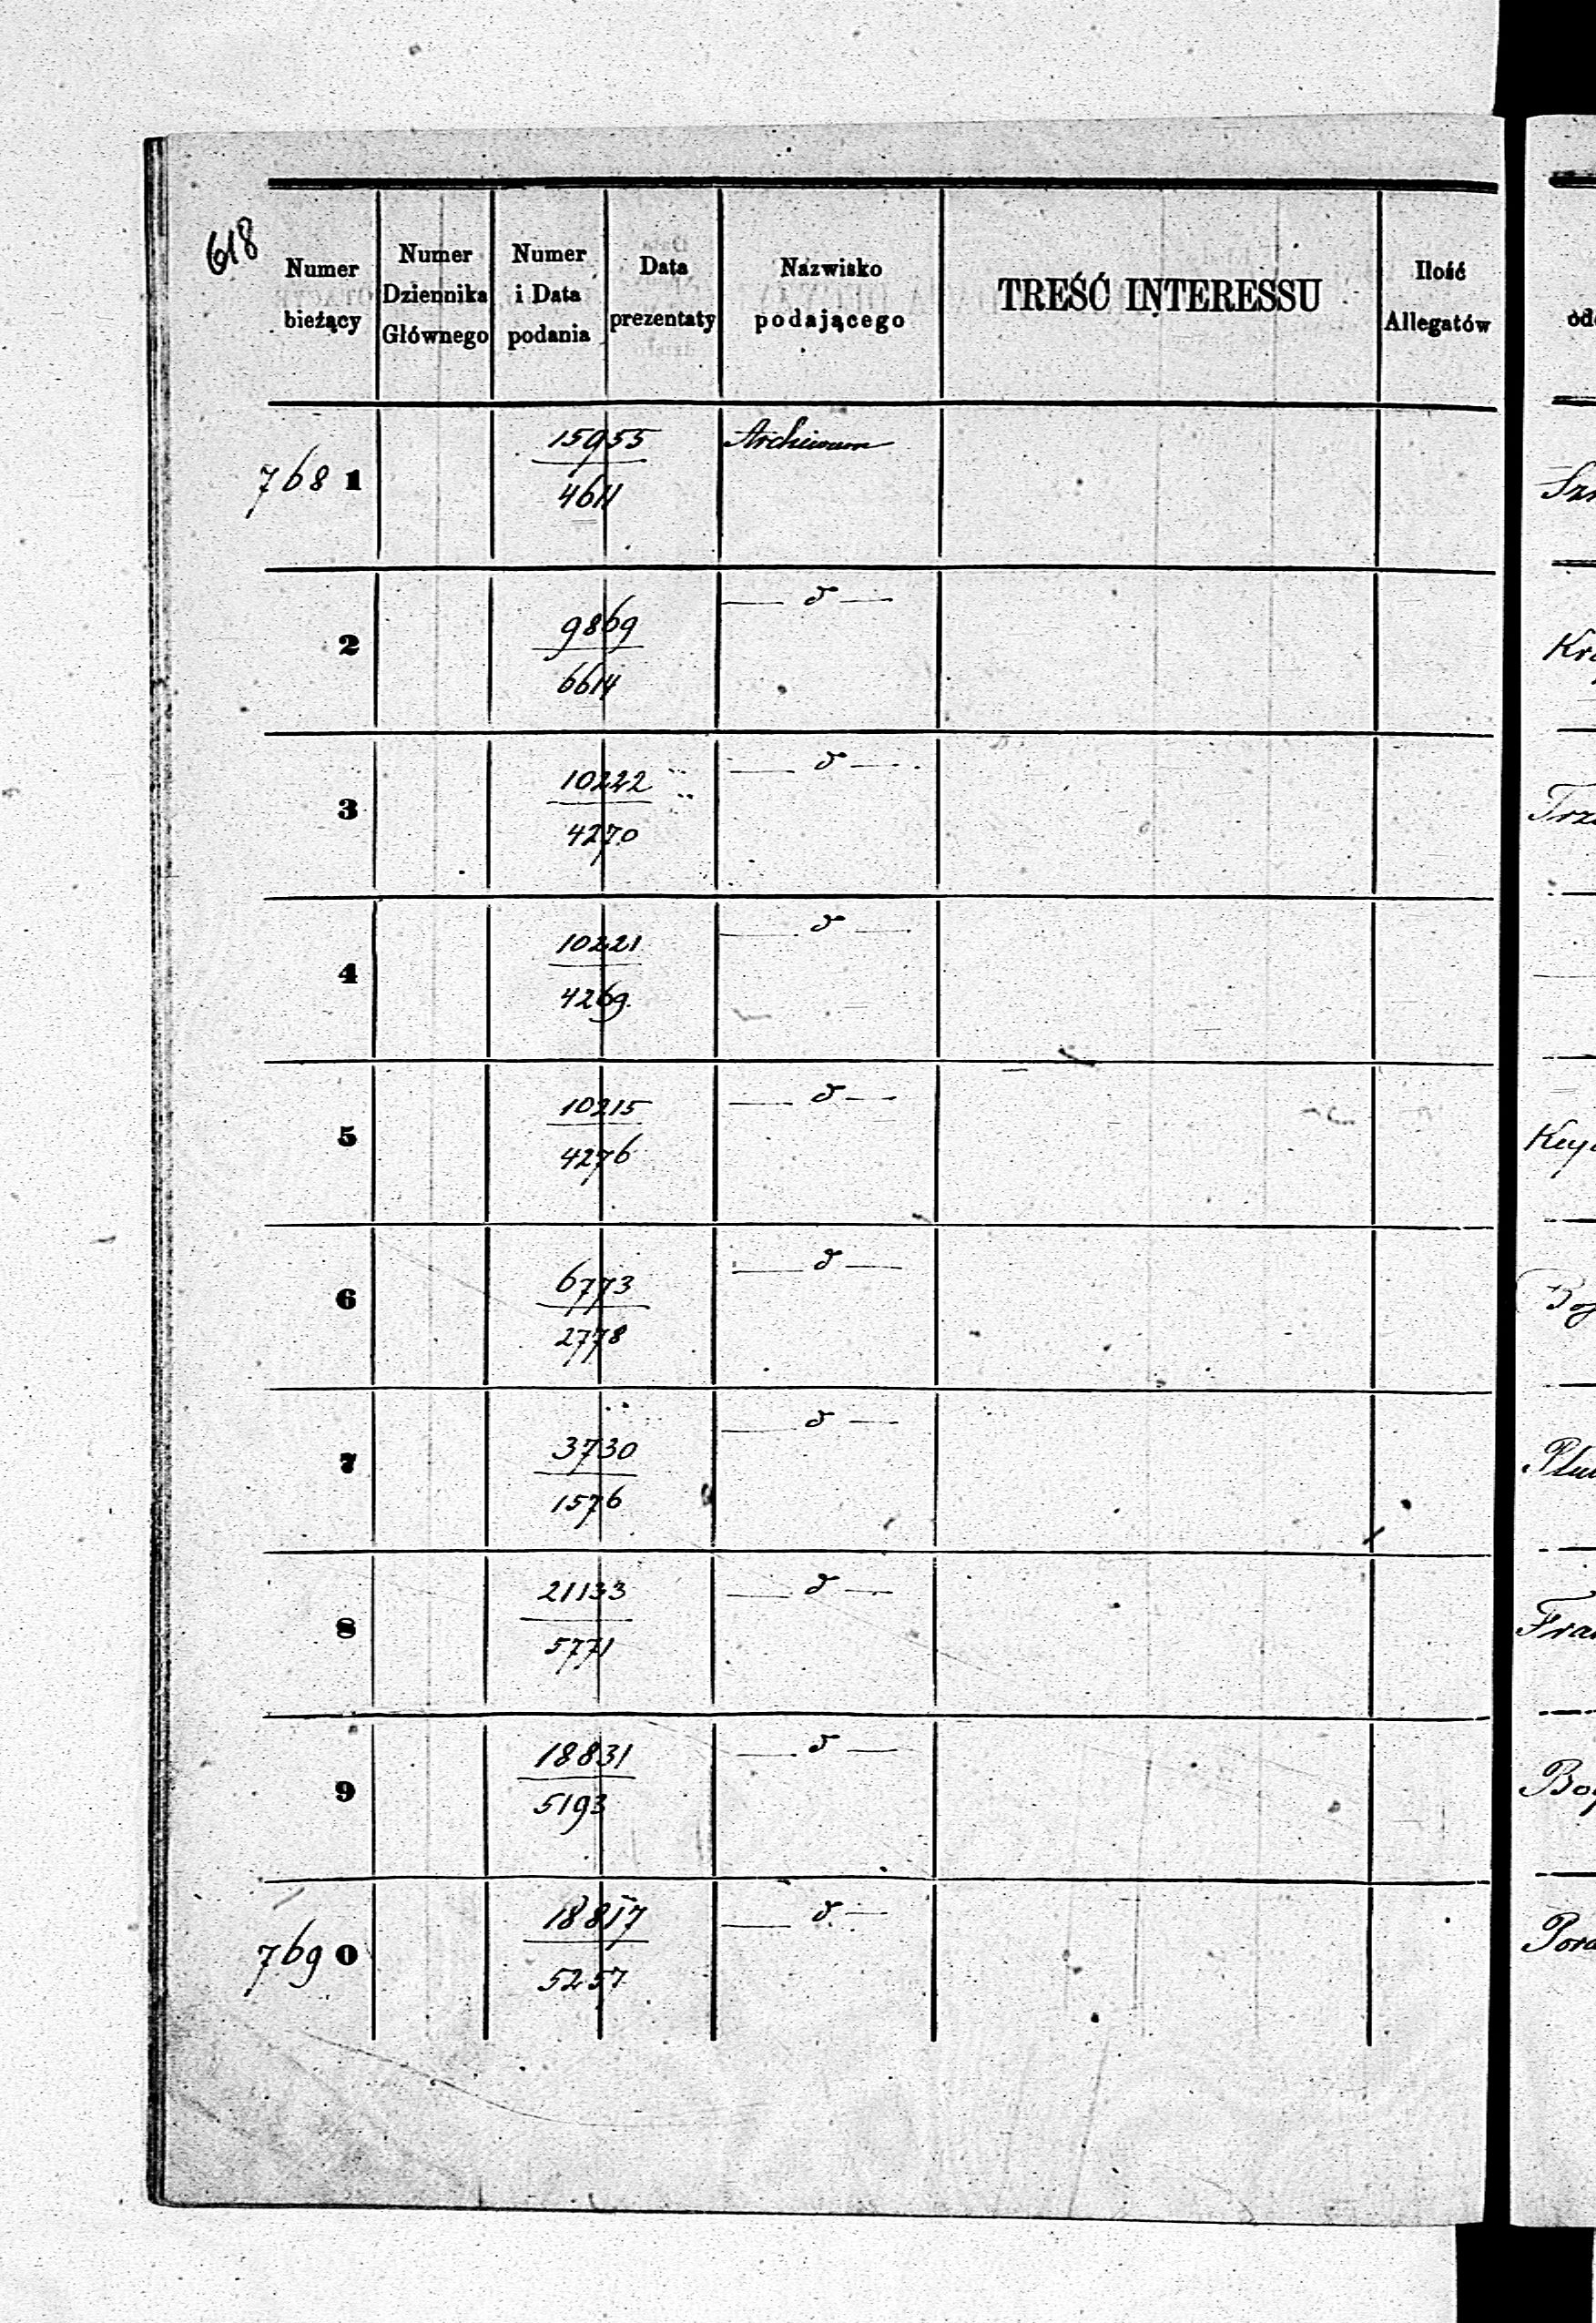 618
Numer bieżący
Numer Dziennika Głównego
Numer i Data podania
Data prezentaty
Nazwisko podającego
TREŚĆ INTERESSU
Ilość Allegatów
7681
15955
4611
Archiwum
2
9869
6614
— d —
3
10222
4270
— d —
4
10221
4269
— d —
5
10215
4276
— d —
6
6773
2778
— d —
7
3730
1576
— d —
8
21133
5771
— d —
9
18831
5193
— d —
7690
18817
5257
— d —